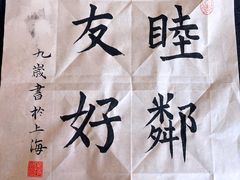 睦鄰
友好
九歲書於上海